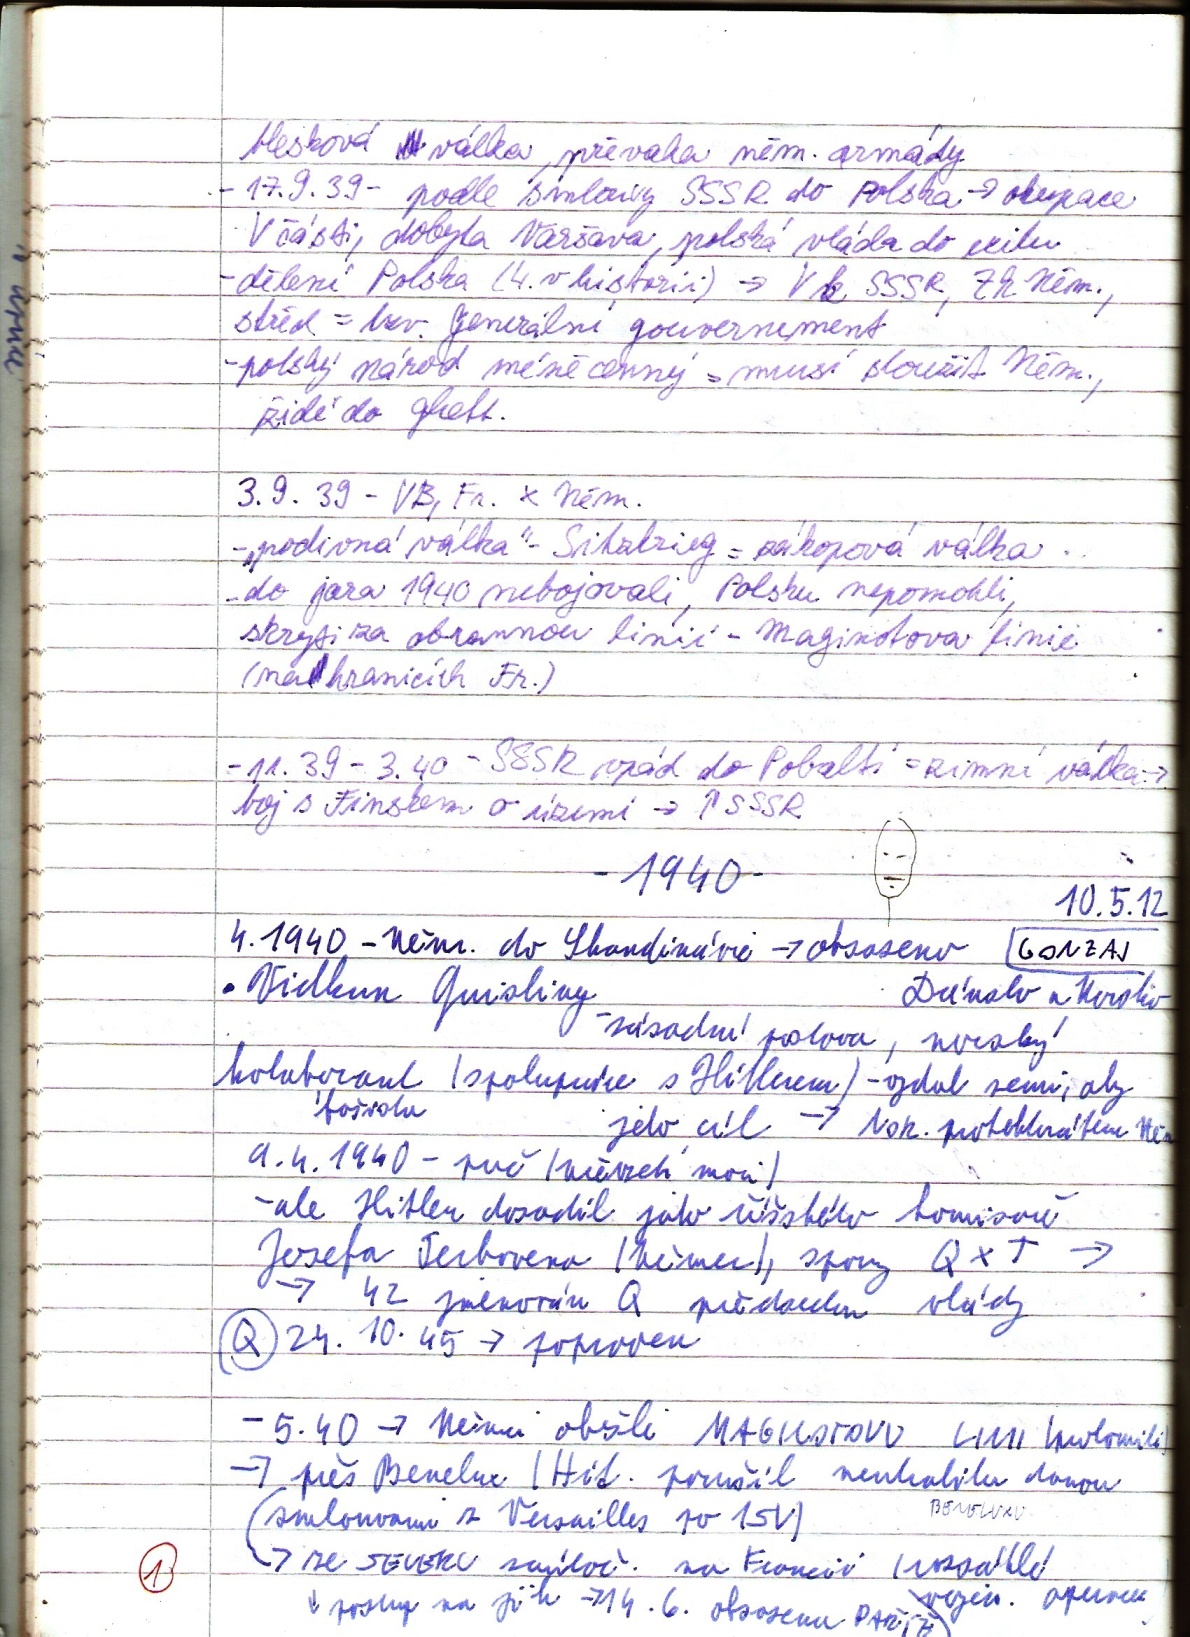 blesková válka, převaha něm. armády
- 17.9.39 - podle smlouvy SSSR do Polska → okupace
V části, dobyta Varšava, polská vláda do exilu
- dělení Polska (4. v historii) → V k SSSR, Z k Něm.,
střed = tzv. Generální gouvernement
- polský národ méněcenný = musí sloužit Něm.,
židé do ghett.
3.9.39 - VB, Fr. × Něm.
- „podivná válka" - Sitzkrieg = zákopová válka
- do jara 1940 nebojovali, Polsku nepomohli,
skrytí za obrannou linií - Maginotova linie
(na hranicích Fr.)
- 11.39 - 3.40 - SSSR vpád do Pobaltí = zimní válka →
boj s Finskem o území → ↑ SSSR
- 1940 -
10.5.12
4.1940 - Něm. do Skandinávie → obsazeno GONZAJ
• Vidkun Quisling Dánsko a Norsko
- zásadní postava, norský
kolaborant (spolupráce s Hitlerem) - vzdal zemi, aby
jeho cíl → Nor. protektorátem Něm
9.4.1940 - puč (převzetí moci)
- ale Hitler dosadil jako říšského komisaře
Josefa Terbovena (Němec), spory Q × T →
→ 42 jmenován Q předsedou vlády
Q 24.10.45 → popraven
- 5.40 → Němci obešli MAGINOTOVU LINII (prolomili)
→ přes Benelux (Hit. porušil neutralitu danou
BENELUXU
smlouvami z Versailles po 1SV)
→ ze SEVERU zaútoč. na Francii (rozsáhlá
vojen. operace
↓ postup na jih → 14.6. obsazena PAŘÍŽ
1